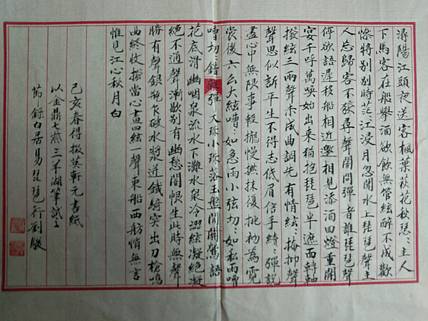 潯陽江頭夜送客楓葉荻花秋瑟〻主人
下馬客在船舉酒欲飲無管絃醉不成歡
慘將別別時茫〻江浸月忽聞水上琵琶聲主
人忘歸客不發尋聲闇問彈者誰琵琶聲
停欲語遲移船相近邀相見添酒回燈重開
宴千呼萬喚始出來猶抱琵琶半遮面轉軸
撥絃三兩聲未成曲調先有情絃〻掩抑聲
聲思似訴平生不得志低眉信手續〻彈說
盡心中無限事輕攏慢撚抹復挑初為霓
裳後六幺大絃嘈〻如急雨小絃切〻如私語嘈
嘈切〻錯雜彈大珠小珠落玉盤間關鶯語
花底滑幽咽泉流水下灘水泉冷澀絃凝絕凝
絕不通聲漸歇別有幽愁闇恨生此時無聲
勝有聲銀瓶乍破水漿迸鐵騎突出刀槍鳴
曲終收撥當心畫四絃一聲東船西舫悄無言
惟見江心秋月白
己亥春得掇英軒元書紙
以金鼎七兩三羊湖筆試之
節錄白居易琵琶行劉